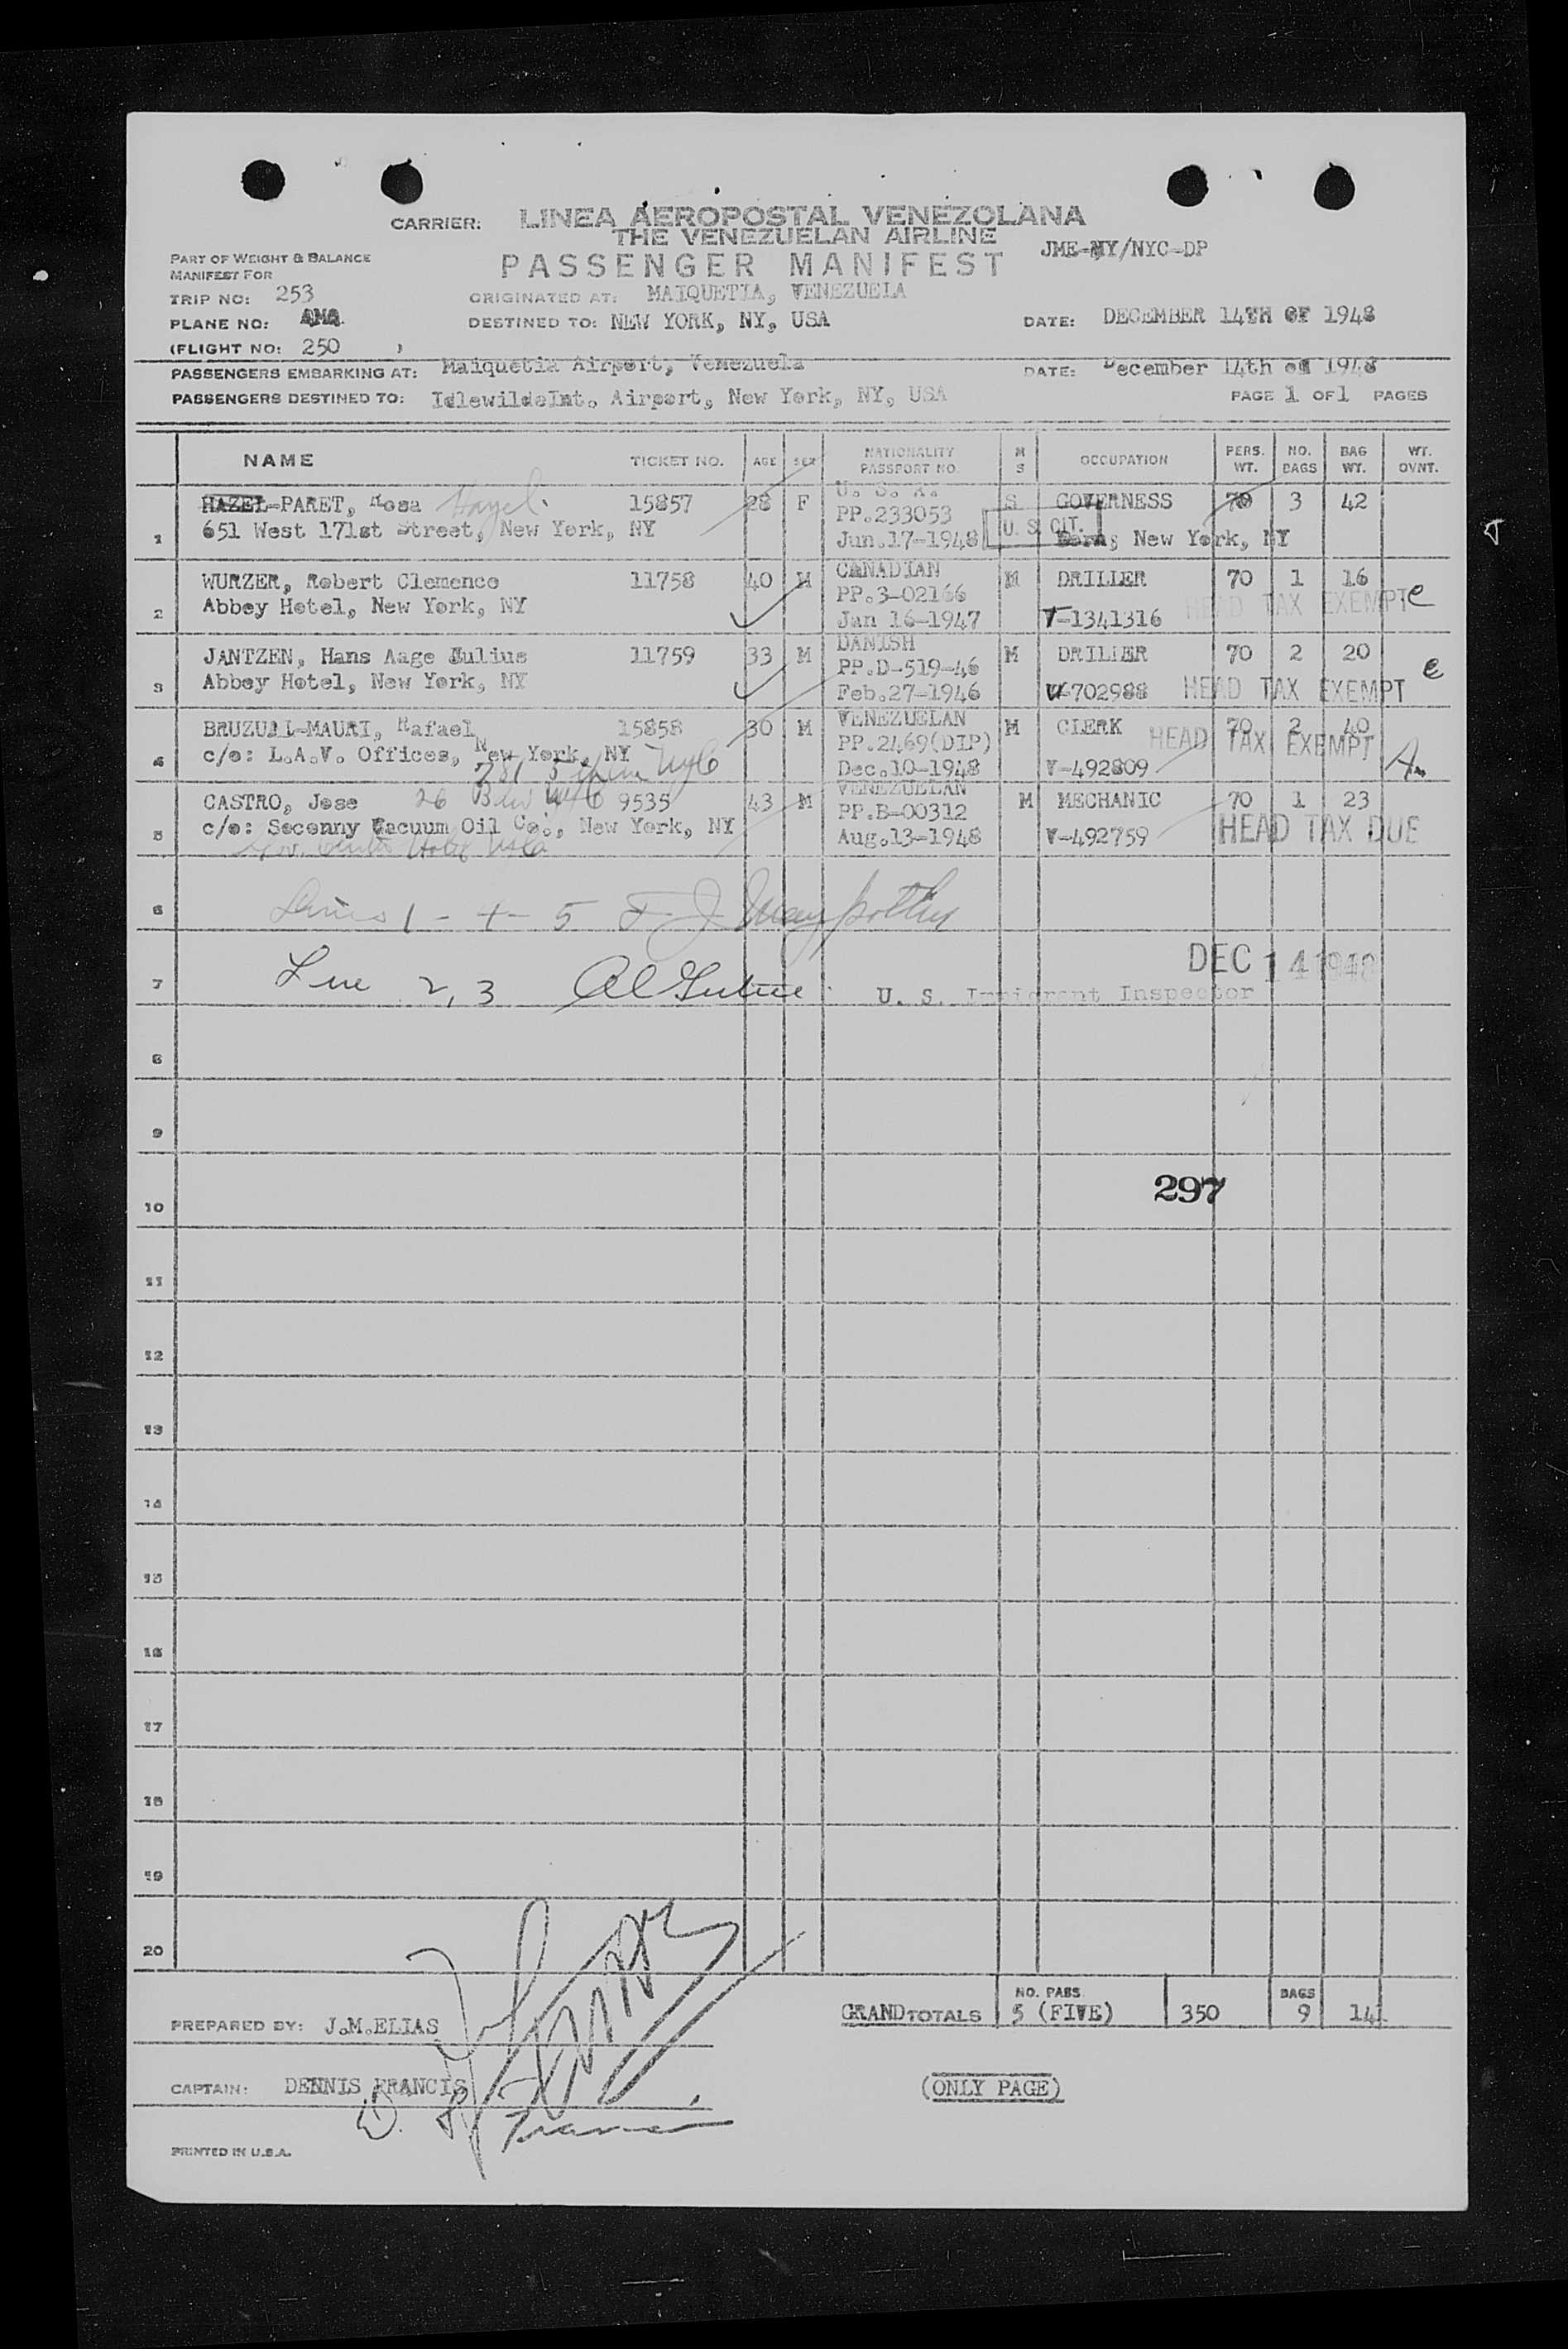 CARRIER: LINEA AEROPOSTAL VENEZOLANA
THE VENEZUELAN AIRLINE
JME-NY/NYC-DP
PART OF WEIGHT & BALANCE
MANIFEST FOR
PASSENGER MANIFEST
TRIP NO: 253 ORIGINATED AT: MAIQUETIA, VENEZUELA
PLANE NO: AMA DESTINED TO: NEW YORK, NY, USA DATE: DECEMBER 14TH OF 1948
(FLIGHT NO: 250 )
PASSENGERS EMBARKING AT: Maiquetia Airport, Venezuela DATE: December 14th of 1948
PASSENGERS DESTINED TO: IdlewildeInt. Airport, New York, NY, USA PAGE 1 OF 1 PAGES
NAME TICKET NO. AGE SEX NATIONALITY PASSPORT NO. M S OCCUPATION PERS. WT. NO. BAGS BAG WT. WT. OVNT.
HAZEL-PARET, Rosa Hazel 15857 28 F U. S. A. S GOVERNESS 70 3 42
PP.233053
1 651 West 171st Street, New York, NY Jun.17-1948 U. S. CIT. Born; New York, NY
WURZER, Robert Clemence 11758 40 M CANADIAN M DRILLER 70 1 16
PP.3-02166
2 Abbey Hotel, New York, NY Jan 16-1947 T-1341316 HEAD TAX EXEMPT e
JANTZEN, Hans Aage Julius 11759 33 M DANISH M DRILLER 70 2 20
PP.D-519-46
3 Abbey Hotel, New York, NY Feb.27-1946 V-702988 HEAD TAX EXEMPT e
BRUZUAL-MAURI, Rafael 15858 30 M VENEZUELAN M CLERK 70 2 40
PP.2469(DIP) HEAD TAX EXEMPT
4 c/o: L.A.V. Offices, New York, NY Dec.10-1948 V-492809
CASTRO, Jose 26 NYC 9535 43 M VENEZUELAN M MECHANIC 70 1 23
PP.B-00312
5 c/o: Soconny Vacuum Oil Co., New York, NY Aug.13-1948 V-492759 HEAD TAX DUE
6 Lines 1 - 4 - 5
DEC 14 1948
7 Line 2, 3 U. S. Immigrant Inspector
8
9
297
10
11
12
13
14
15
16
17
18
19
20
NO. PASS. BAGS
GRAND TOTALS 5 (FIVE) 350 9 141
PREPARED BY: J.M.ELIAS
CAPTAIN: DENNIS FRANCIS (ONLY PAGE)
D. Francis
PRINTED IN U.S.A.